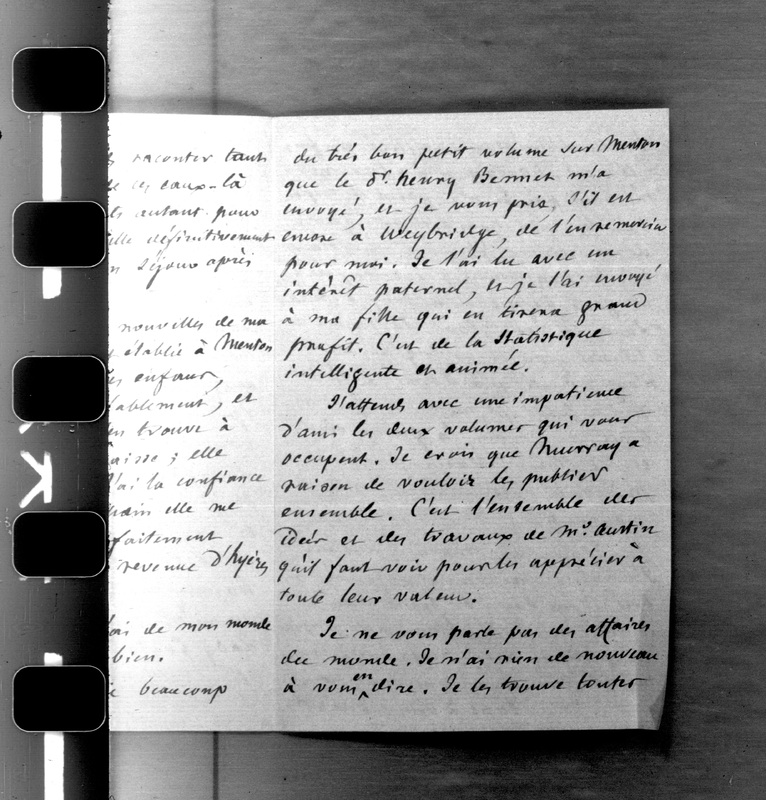 raconter tant
ces eaux-là
autant pour
elle définitivement
séjour après
nouvelles de ma
établie à Menton
enfans,
et
trouve à
elle
J'ai la confiance
elle me
revenue d'hyères
de mon monde
bien.
beaucoup
du très bon petit volume sur Menton
que le Dr. henry Bennet m'a
envoyé, et je vous prie, s'il est
encore à Weybridge, de l'en remercier
pour moi. Je l'ai lu avec un
intérêt paternel, et je l'ai envoyé
à ma fille qui en tirera grand
profit. C'est de la Statistique
intelligente et animée.
J'attends avec une impatience
d'ami les deux volumes qui vous
occupent. Je crois que Murray a
raison de vouloir les publier
ensemble. C'est l'ensemble des
idées et des travaux de Mr. Austin
qu'il faut voir pour les apprécier à
toute leur valeur.
Je ne vous parle pas des affaires
du monde. Je n'ai rien de nouveau
à vous en dire. Je les trouve toutes